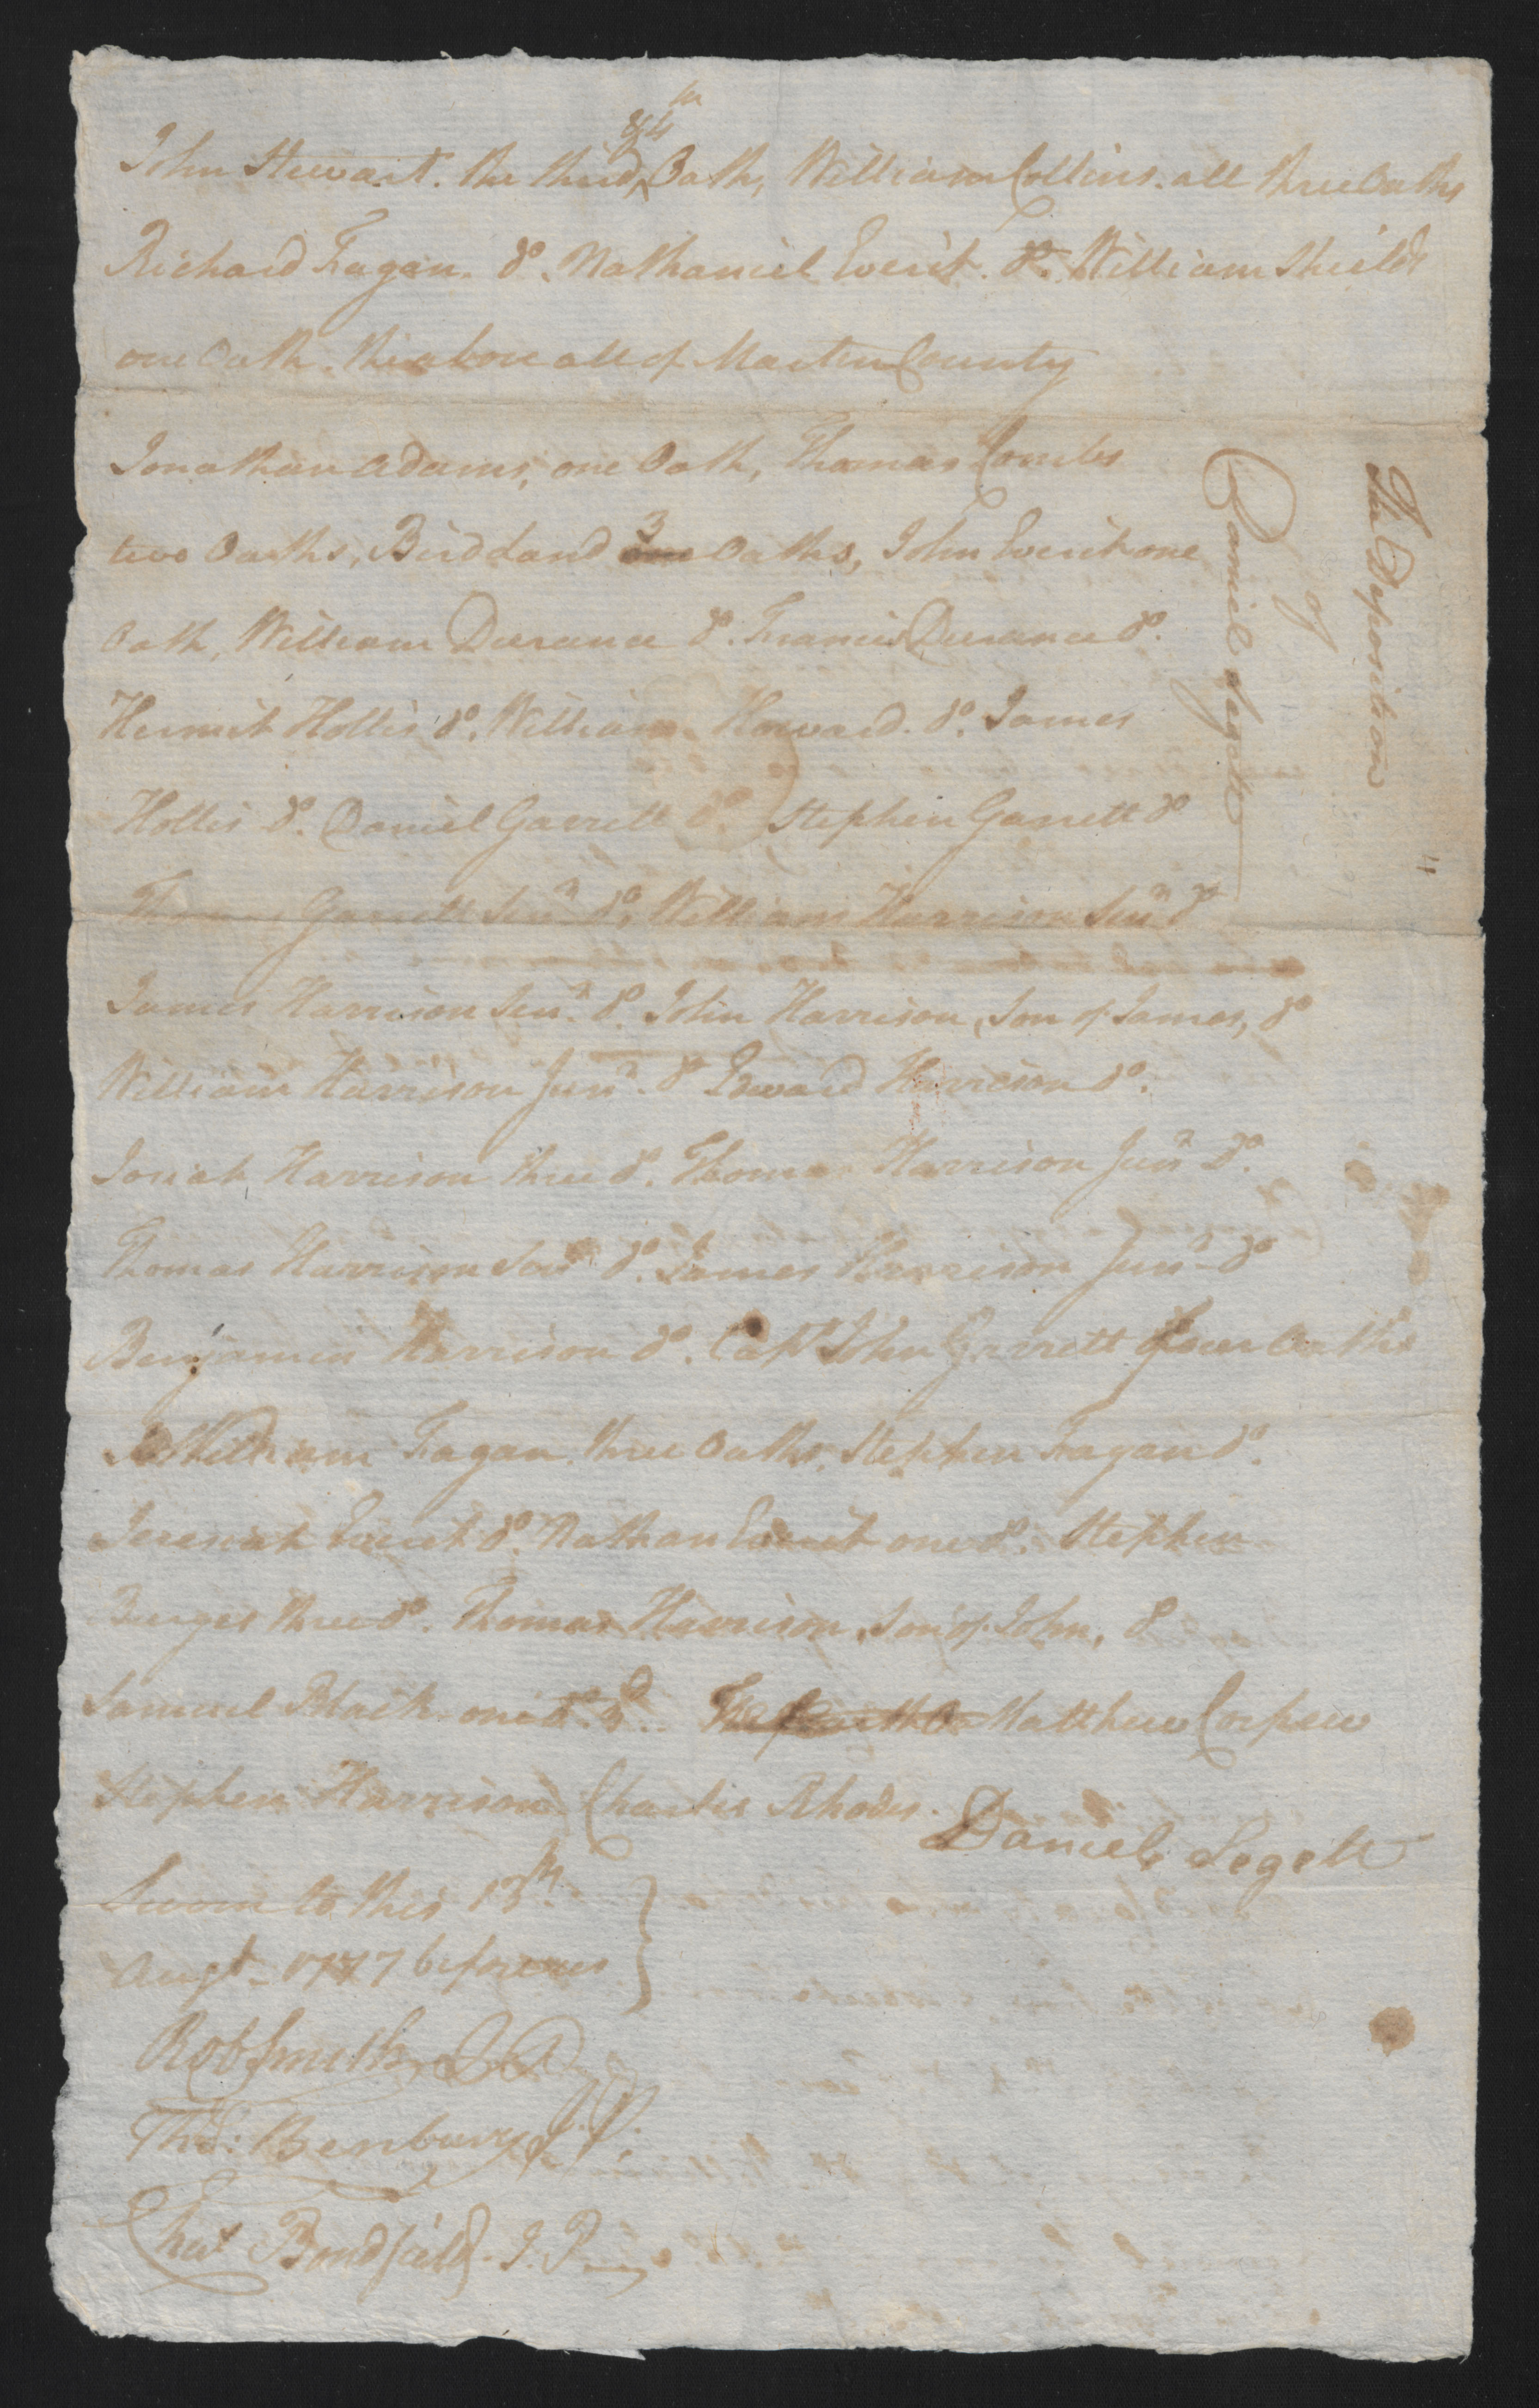 & 4th
John Stewart. the third Oath, William Collins. all three Oaths
Richard Fagan. do. Nathaniel Everit. do. William Shields
one Oath. the above all of Martin County
Jonathan Adams, one Oath, Thomas Combs
two Oaths, Bird Land 3 Oaths, John Everit one
Oath, William Durance do. Francis Durance do.
Hermit Hollis do. William Howard. do. James
Hollis do. Daniel Garrett do. Stephen Garrett do
Garrett Senr. do. William Harrison Senr. do
James Harrison Senr. do. John Harrison, Son of James, do
William Harrison Junr. do Edward Harrison do.
Josiah Harrison three do. Thomas Harrison Junr do.
Thomas Harrison Senr do. James Harrison Junr do
Benjamin Harrison do. Capt John Garrett four Oaths
William Fagan three Oaths, Stephen Fagan do.
Jeremiah Everit do. Nathan Everit one do. Stephen
Burges three do. Thomas Harrison, Son of John, do
Samuel Black one do. Matthew Corpew
Stephen Harrison Charles Rhodes.
Daniel Legett
Sworn to this 13th.
Augt. 1777 before us
Rob Smith J P
Thos: Benbury J. P.
Chas Bondfield. J. P
The Deposition
of
Daniel Legett